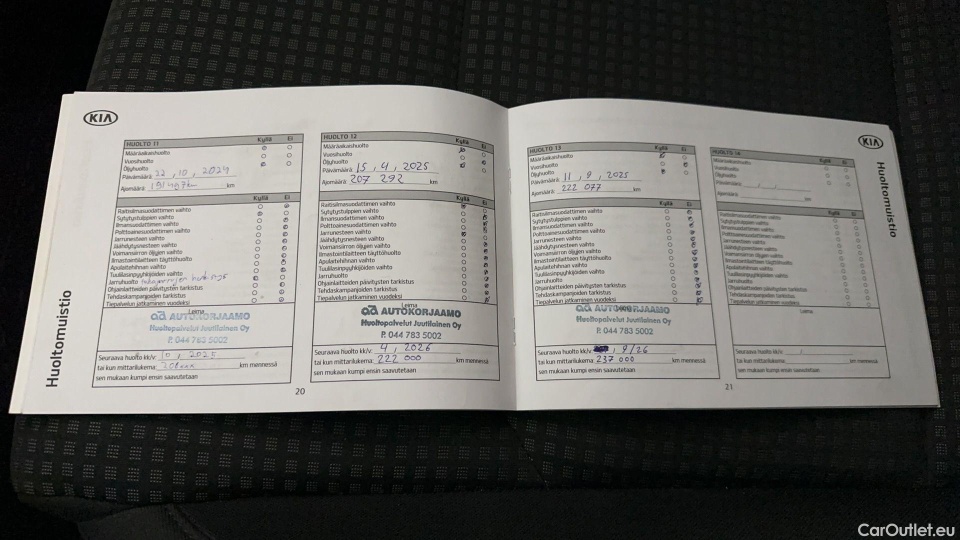 KIA
HUOLTO 11
Kyllä Ei
Määräaikaishuolto
Vuosihuolto
Öljyhuolto
Päivämäärä: 22 , 10 , 2024
Ajomäärä: km
Kyllä Ei
Raitisilmasuodattimen vaihto
Sytytystulppien vaihto
Ilmansuodattimen vaihto
Polttoainesuodattimen vaihto
Jarrunesteen vaihto
Jäähdytysnesteen vaihto
Voimansiirron öljyjen vaihto
Ilmastointilaitteen täyttöhuolto
Apulaitehihnan vaihto
Tuulilasinpyyhkijöiden vaihto
Jarruhuolto
Ohjainlaitteiden päivitysten tarkistus
Tehdaskampanjoiden tarkistus
Tiepalvelun jatkaminen vuodeksi
Leima
ad AUTOKORJAAMO
Huoltopalvelut Juutilainen Oy
P. 044 783 5002
Seuraava huolto kk/v: 10 , 2025
tai kun mittarilukema: km mennessä
sen mukaan kumpi ensin saavutetaan
HUOLTO 12
Kyllä Ei
Määräaikaishuolto
Vuosihuolto
Öljyhuolto
Päivämäärä: 15 , 4 , 2025
Ajomäärä: 207 292 km
Kyllä Ei
Raitisilmasuodattimen vaihto
Sytytystulppien vaihto
Ilmansuodattimen vaihto
Polttoainesuodattimen vaihto
Jarrunesteen vaihto
Jäähdytysnesteen vaihto
Voimansiirron öljyjen vaihto
Ilmastointilaitteen täyttöhuolto
Apulaitehihnan vaihto
Tuulilasinpyyhkijöiden vaihto
Jarruhuolto
Ohjainlaitteiden päivitysten tarkistus
Tehdaskampanjoiden tarkistus
Tiepalvelun jatkaminen vuodeksi
Leima
ad AUTOKORJAAMO
Huoltopalvelut Juutilainen Oy
P. 044 783 5002
Seuraava huolto kk/v: 4 , 2026
tai kun mittarilukema: 222 000 km mennessä
sen mukaan kumpi ensin saavutetaan
Huoltomuistio
20
KIA
HUOLTO 13
Kyllä Ei
Määräaikaishuolto
Vuosihuolto
Öljyhuolto
Päivämäärä: 11 , 9 , 2025
Ajomäärä: 222 077 km
Kyllä Ei
Raitisilmasuodattimen vaihto
Sytytystulppien vaihto
Ilmansuodattimen vaihto
Polttoainesuodattimen vaihto
Jarrunesteen vaihto
Jäähdytysnesteen vaihto
Voimansiirron öljyjen vaihto
Ilmastointilaitteen täyttöhuolto
Apulaitehihnan vaihto
Tuulilasinpyyhkijöiden vaihto
Jarruhuolto
Ohjainlaitteiden päivitysten tarkistus
Tehdaskampanjoiden tarkistus
Tiepalvelun jatkaminen vuodeksi
ad AUTOKORJAAMO
Huoltopalvelut Juutilainen Oy
P. 044 783 5002
Seuraava huolto kk/v: 9/26
tai kun mittarilukema: 237 000 km mennessä
sen mukaan kumpi ensin saavutetaan
HUOLTO 14
Kyllä Ei
Määräaikaishuolto
Vuosihuolto
Öljyhuolto
Päivämäärä: , ,
Ajomäärä: km
Kyllä Ei
Raitisilmasuodattimen vaihto
Sytytystulppien vaihto
Ilmansuodattimen vaihto
Polttoainesuodattimen vaihto
Jarrunesteen vaihto
Jäähdytysnesteen vaihto
Voimansiirron öljyjen vaihto
Ilmastointilaitteen täyttöhuolto
Apulaitehihnan vaihto
Tuulilasinpyyhkijöiden vaihto
Jarruhuolto
Ohjainlaitteiden päivitysten tarkistus
Tehdaskampanjoiden tarkistus
Tiepalvelun jatkaminen vuodeksi
Leima
Seuraava huolto kk/v: ,
tai kun mittarilukema: km mennessä
sen mukaan kumpi ensin saavutetaan
Huoltomuistio
21
CarOutlet.eu